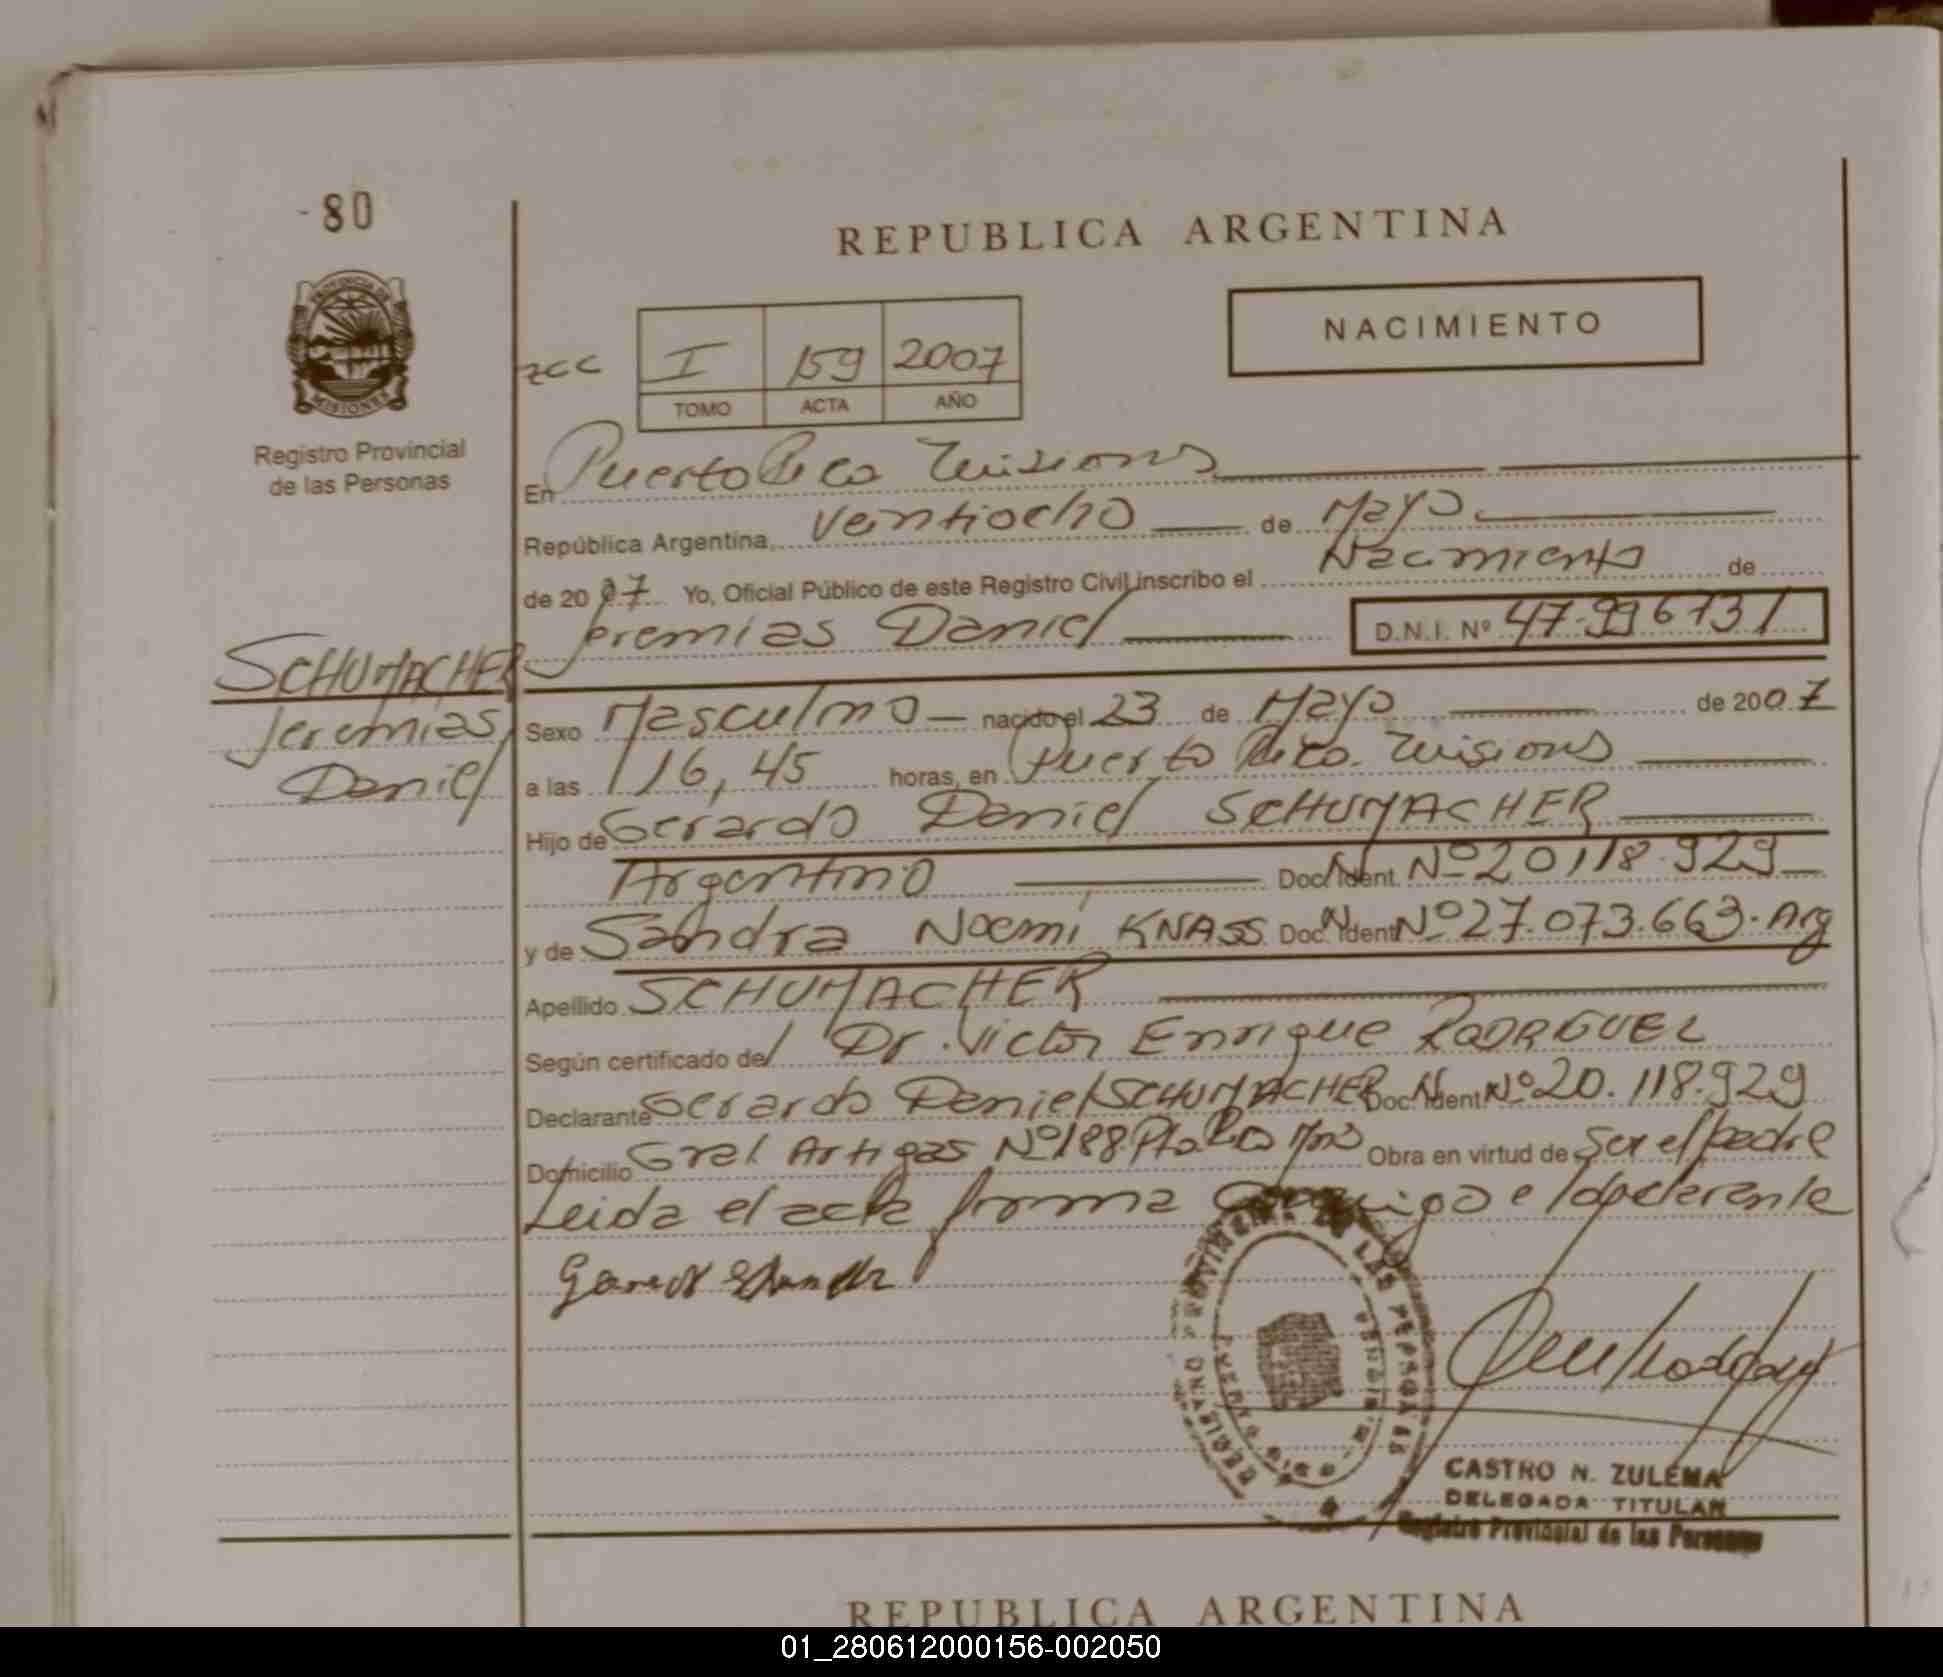 - 80
REPUBLICA ARGENTINA
PROVINCIA DE
MISIONES
Registro Provincial
de las Personas
NACIMIENTO
zcc I 159 2007
TOMO ACTA AÑO
En Puerto Rico Misiones
República Argentina, veintiocho de Mayo
de 2007 Yo, Oficial Público de este Registro Civil inscribo el Nacimiento de
Jeremias Daniel D.N.I. Nº 47.996731
SCHUMACHER
Jeremias
Daniel
Sexo Masculino nacido el 23 de Mayo de 2007
a las 16,45 horas, en Puerto Rico. Misiones
Hijo de Gerardo Daniel SCHUMACHER
Argentino Doc. Ident. Nº 20.118.929
y de Sandra Noemi KNASS Doc. Ident Nº 27.073.663. Arg
Apellido SCHUMACHER
Según certificado del Dr. Victor Enrique RODRGUEZ
Declarante Gerardo Daniel SCHUMACHER Doc. Ident Nº 20.118.929
Domicilio Gral. Artigas Nº 188. Pto. Rico Mns Obra en virtud de Ser el padre
Leida el acta firma conmigo el declarante
REGISTRO PROVINCIAL DE LAS PERSONAS
PUERTO RICO MISIONES
CASTRO N. ZULEMA
DELEGADA TITULAR
Registro Provincial de las Personas
REPUBLICA ARGENTINA
01_280612000156-002050